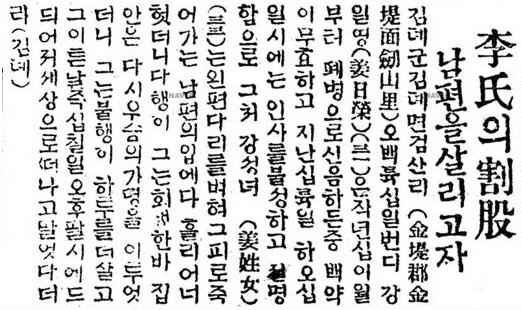 李氏의割股
남편을살리고자
김뎨군김뎨면검산리 (金堤郡金
堤面劒山里)오백륙십일번디 강
일영(姜日榮)은작년십이월
부터 폐병으로신음하든중 백약
이무효하고 지난십륙일 하오십
일시에는 인사를불성하고 명
함으로 그처 강성녀 (姜姓女)
는왼편다리를버혀그피로죽
어가는 남편의입에다 흘리어너
헛더니다행이 그는회생한바 집
안은 다시우슴의가뎡을 이루엇
더니 그는불행이 하로를더살고
그이튼날즉십칠일오후팔시에드
되어저세상으로떠나고말엇다더
라(김뎨)